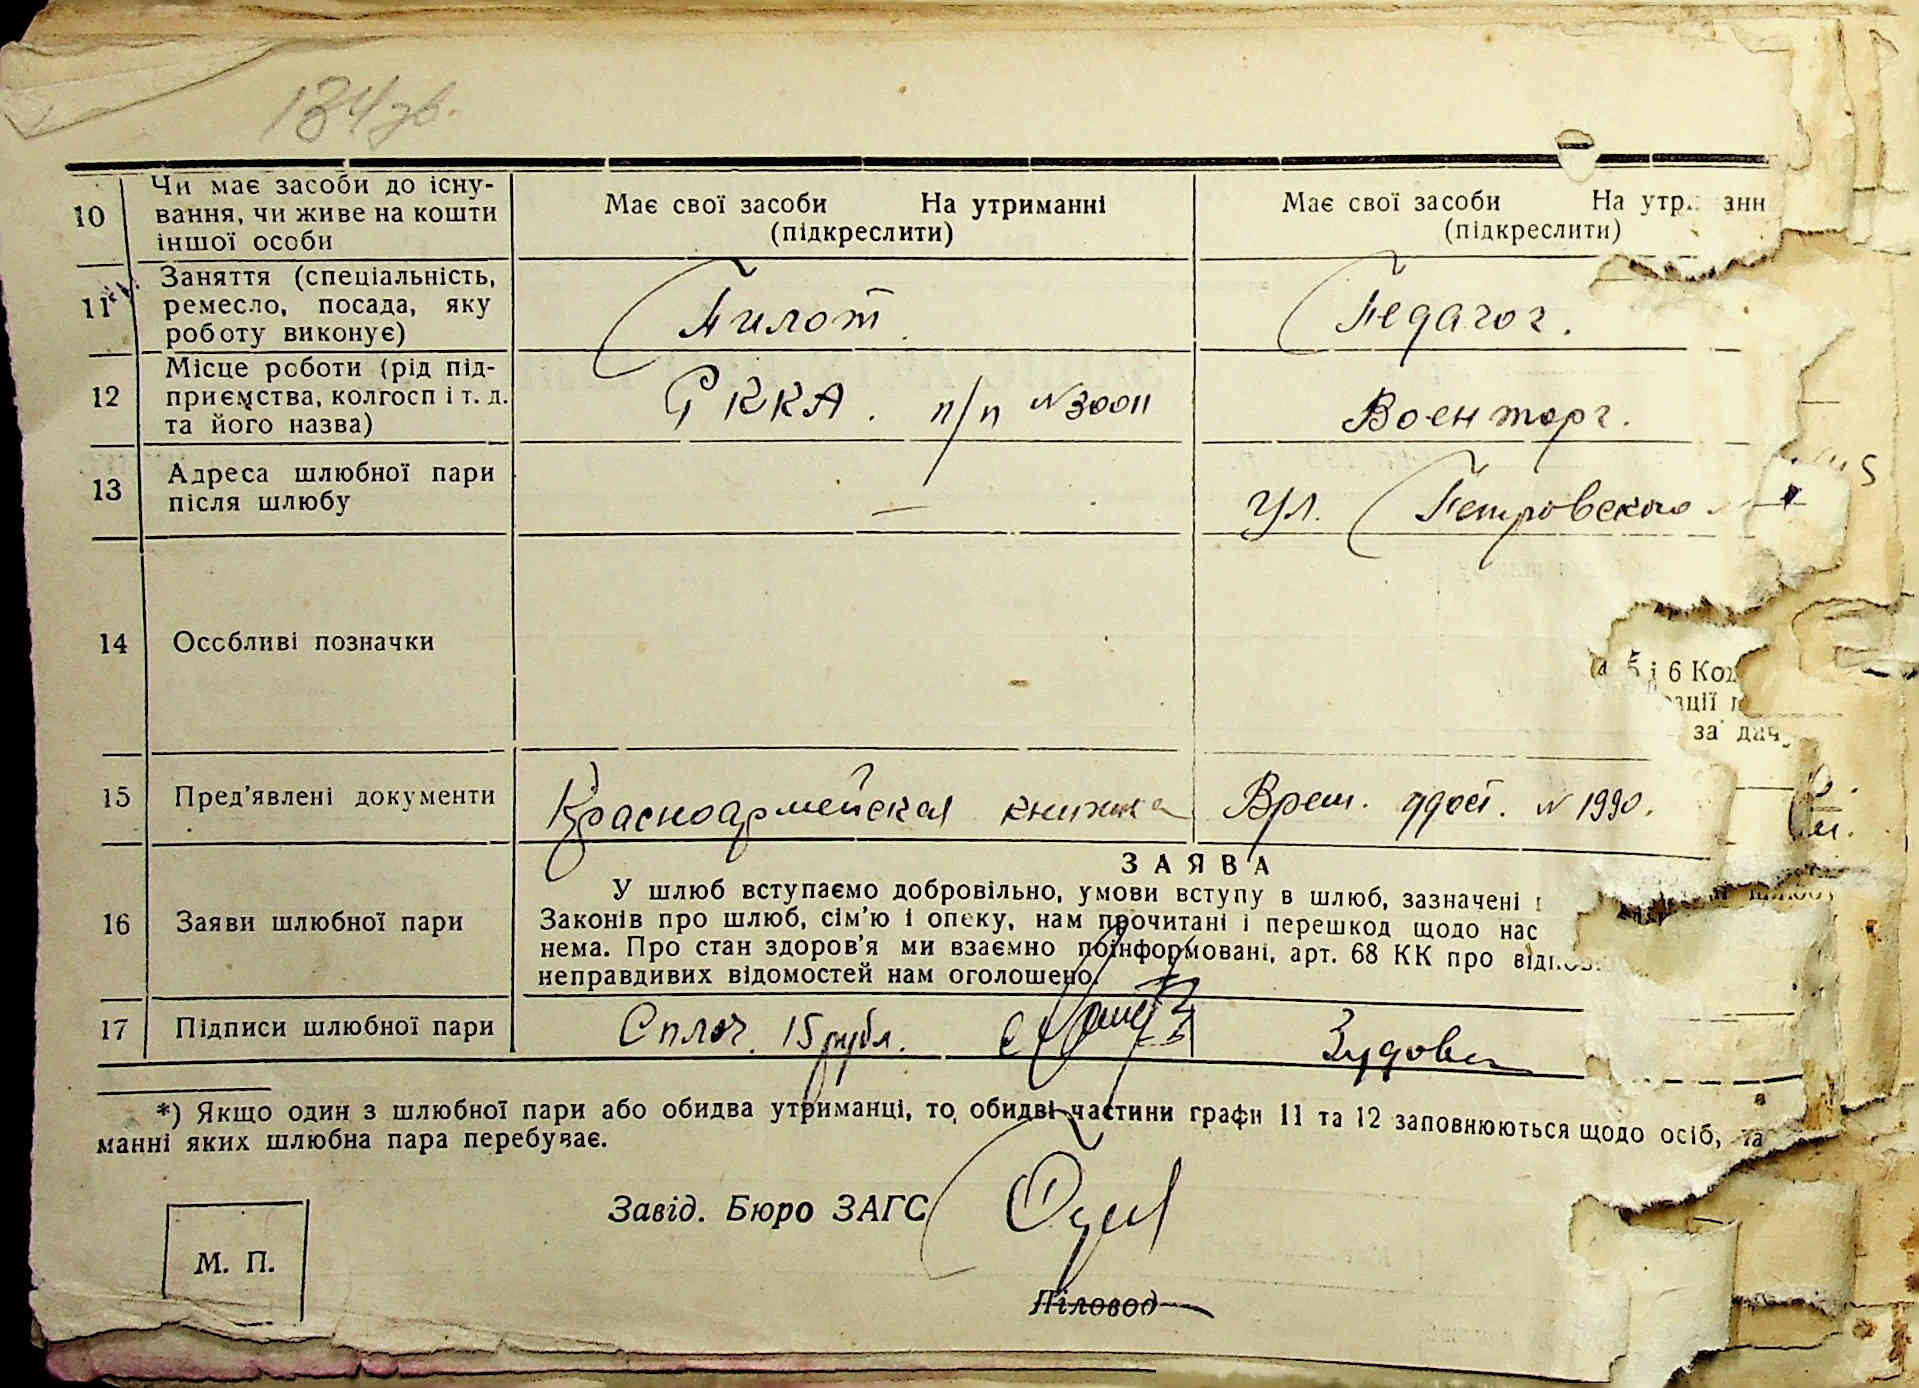 134 зв.
10 Чи має засоби до існу-
вання, чи живе на кошти
іншої особи
Має свої засоби На утриманні
(підкреслити)
Має свої засоби На утр
(підкреслити)
11 Заняття (спеціальність,
ремесло, посада, яку
роботу виконує)
Пилот
Педагог.
12 Місце роботи (рід під-
приємства, колгосп і т. д.
та його назва)
РККА. п/п № 30011
Военторг.
13 Адреса шлюбної пари
після шлюбу
—
ул. Петровского
14 Особливі позначки
5 і 6
за
15 Пред'явлені документи
Красноармейская книжка
Врем. удост. № 1990.
16 Заяви шлюбної пари
ЗАЯВА
У шлюб вступаємо добровільно, умови вступу в шлюб, зазначені
Законів про шлюб, сім'ю і опеку, нам прочитані і перешкод щодо нас
нема. Про стан здоров'я ми взаємно поінформовані, арт. 68 КК про
неправдивих відомостей нам оголошено.
17 Підписи шлюбної пари
Сплоч. 15 рубл.
Зудова
*) Якщо один з шлюбної пари або обидва утриманці, то обидві частини графи 11 та 12 заповнюються щодо осіб,
манні яких шлюбна пара перебуває.
Завід. Бюро ЗАГС
Діловод
М. П.